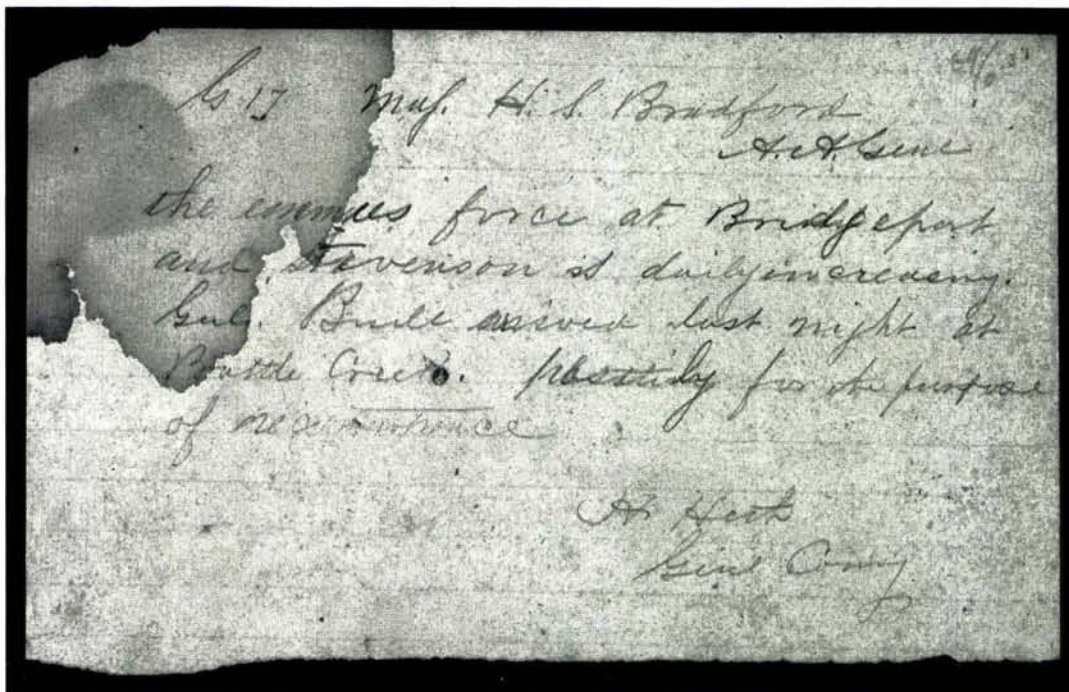 G 17 Maj. H. S. Bradford
A. A. Genl
the enemies force at Bridgeport
and Stevenson is daily increasing.
Genl. Buell arrived last night at
Battle Creek. possibly for the purpose
of
H Heth
Genl Comg